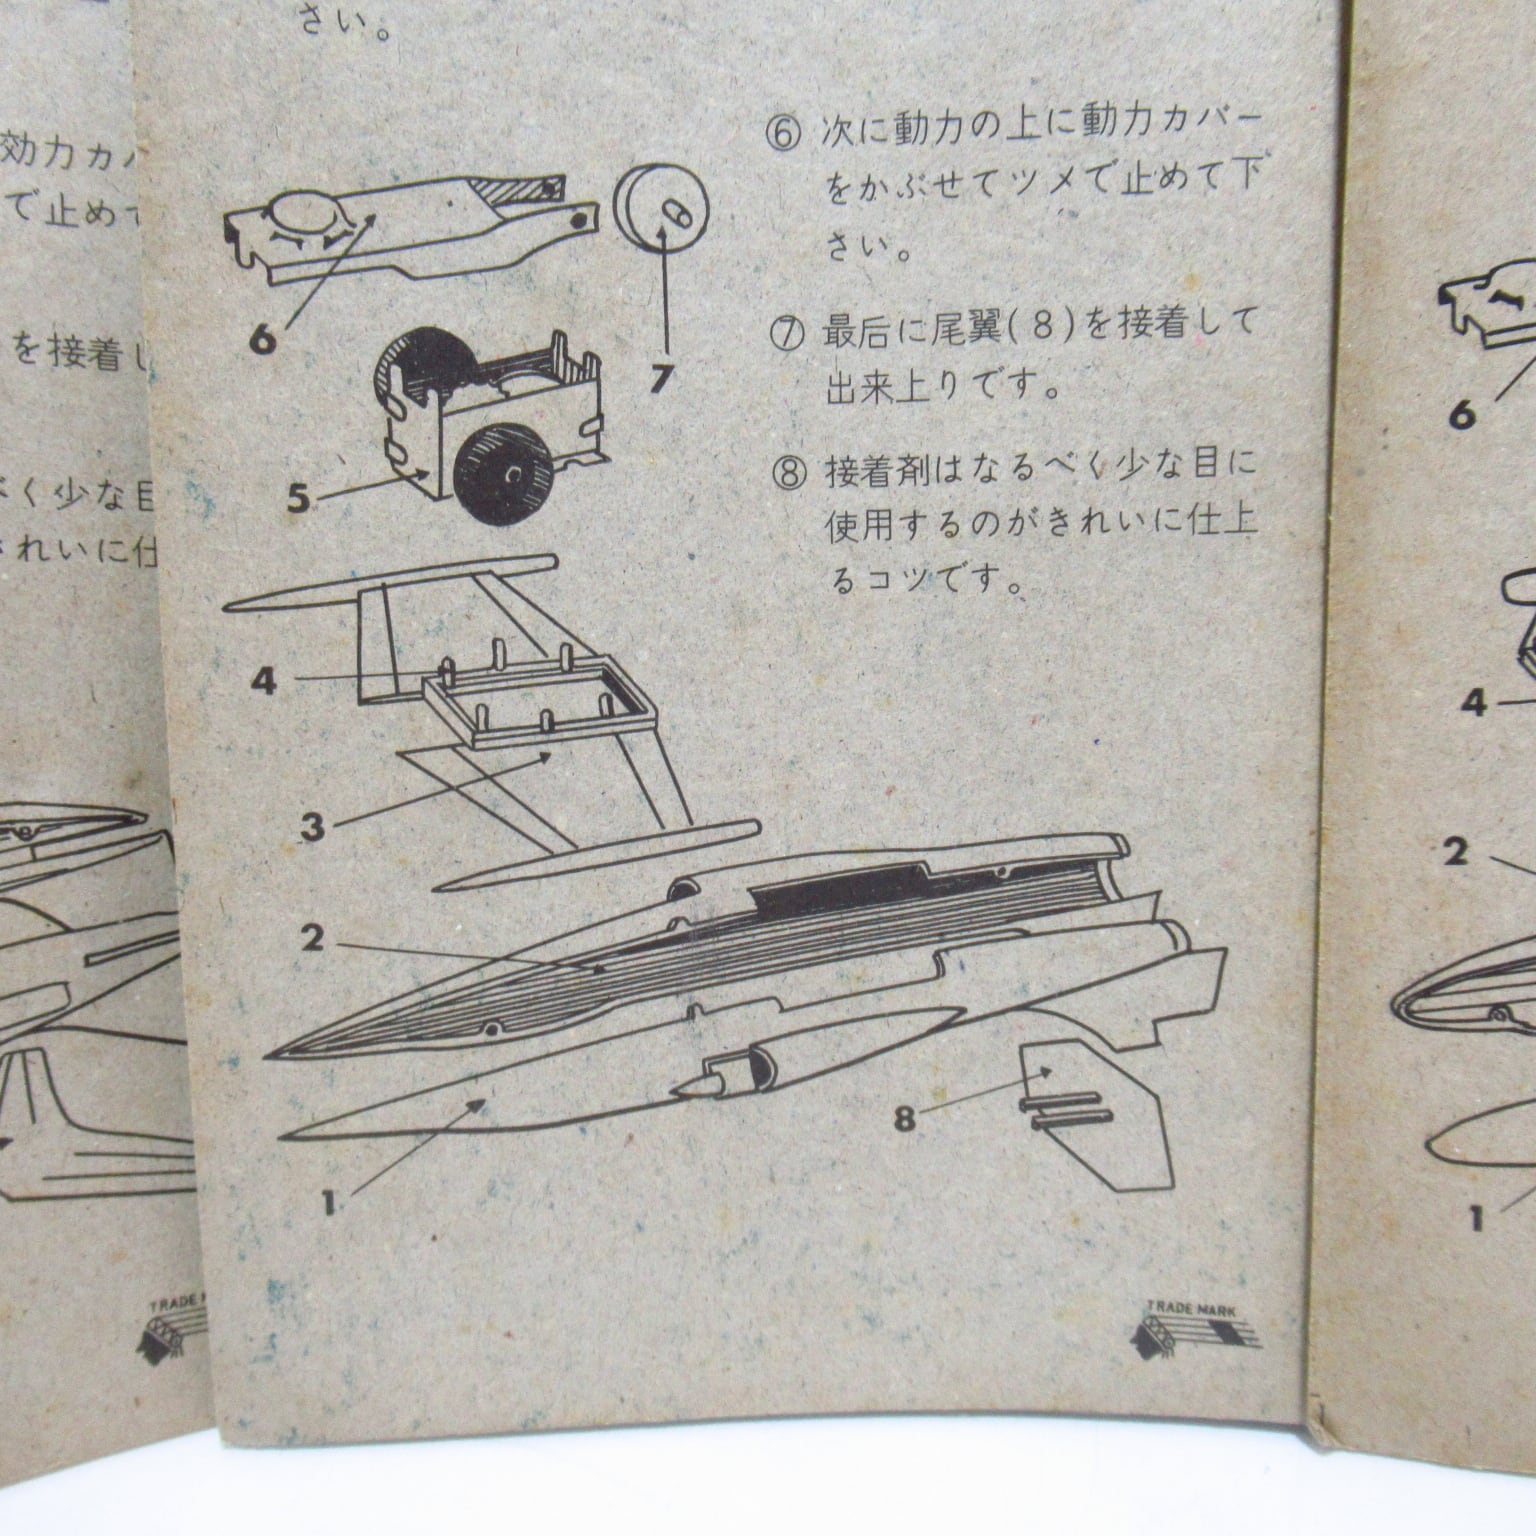 効力カ
で止めて
を接着し
べく少な目
きれいに仕
TRADE
さい。
⑥ 次に動力の上に動力カバー
をかぶせてツメで止めて下
さい。
⑦ 最后に尾翼(8)を接着して
出来上りです。
⑧ 接着剤はなるべく少な目に
使用するのがきれいに仕上
るコツです。
6
7
5
4
3
2
8
1
TRADE MARK
6
4
2
1